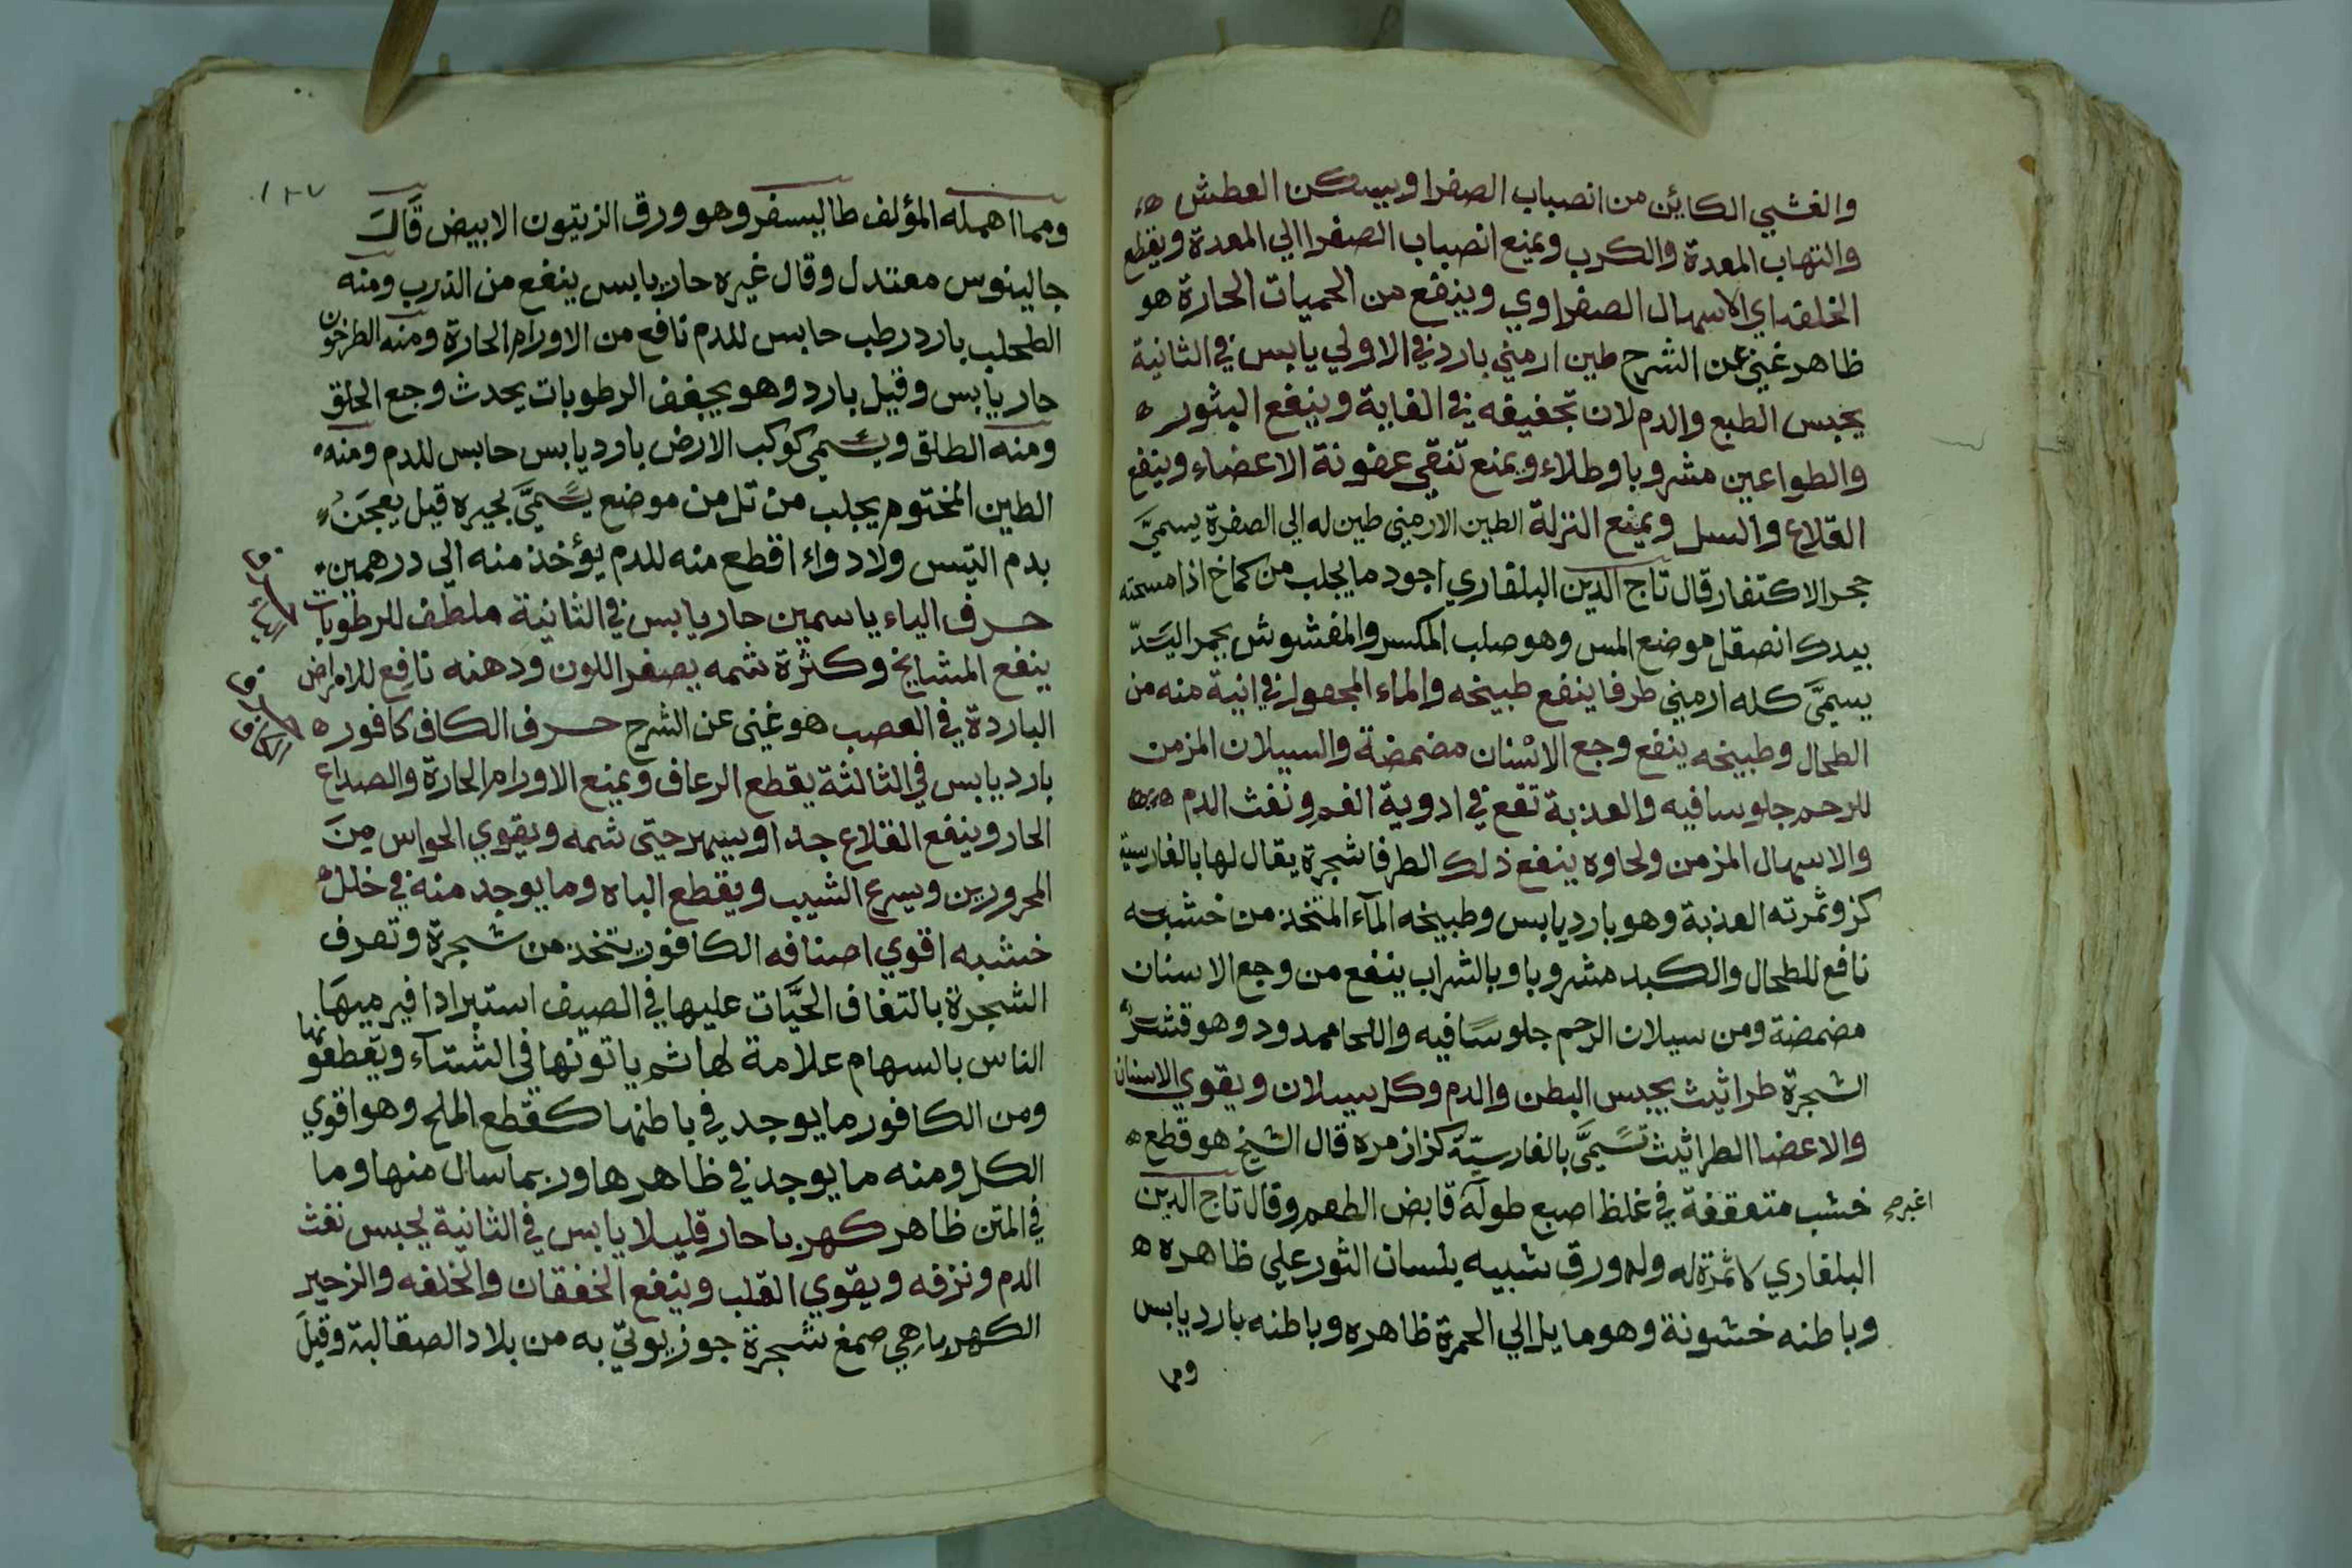 والغشي الكائن من انصباب الصفرا ويسكن العطش
والتهاب المعدة والكرب ويمنع انصباب الصفرا الي المعدة ويقطع
الخلفه اي الاسهال الصفراوي وينفع من الحميات الحارة هو
ظاهر غني عن الشرح طين ارمني بارد في الاولي يابس في الثانية
يحبس الطبع والدم لان تجفيفه في الغاية وينفع البثور
والطواعين مشروبا وطلاء ويمنع تفقي عفونة الاعضاء وينفع
القلاع والسل ويمنع النزلة الطين الارمني طين له الي الصفرة يسمَّي
حجر الاكتفار قال تاج الدين البلغاري اجود ما يجلب من كماخ اذا مسحته
بيدك انصقل موضع المس وهو صلب المكسر والمغشوش بحجر اليَسَدّ
يسمَّي كله ارمني طرفا ينفع طبيخه والماء المجعول في انية منه من
الطحال وطبيخه ينفع وجع الاسنان مضمضة والسيلان المزمن
للرحم جلوسا فيه والعذبة تقع في ادوية الفم ونفث الدم
والاسهال المزمن ولحاوه ينفع ذلك الطرفا شجرة يقال لها بالفارسية
كز وثمرته العذبة وهو بارد يابس وطبيخه المآء المتخذ من خشبه
نافع للطحال والكبد مشروبا وبالشراب ينفع من وجع الاسنان
مضمضة ومن سيلان الرحم جلوسًا فيه واللحا ممدود وهو قشر
الشجرة طراثيث يحبس البطن والدم وكل سيلان ويقوي الاسنان
والاعضا الطراثيث تسمَّي بالفارسيّة كزازمره قال الشيخ هو قطع
خشب متعقفة في غلظ اصبع طوله قابض الطعم وقال تاج الدين
اغبر صح
البلغاري لا ثمرة له وله ورق شبيه بلسان الثور علي ظاهره
وباطنه خشونة وهو مايل الي الحمرة ظاهره وباطنه بارد يابس
ومما
١٣٧
ومما اهمله المؤلف طاليسفر وهو ورق الزيتون الابيض قَالَ
جالينوس معتدل وقال غيره حار يابس ينفع من الذرب ومنه
الطحلب بارد رطب حابس للدم نافع من الاورام الحارة ومنه الطرخون
حار يابس وقيل بارد وهو يجفف الرطوبات يحدث وجع الحلق
ومنه الطلق ويسمي كوكب الارض بارد يابس حابس للدم ومنه
الطين المختوم يجلب من تل من موضع يسمَّي بحيره قيل يعجَنُ
بدم التيس ولا دواء اقطع منه للدم يؤخذ منه الي درهمين
حرف الياء ياسمين حار يابس في الثانية ملطف للرطوبات
حرف الياء
ينفع المشايخ وكثرة شمه يصفر اللون ودهنه نافع للامراض
الباردة في العصب هو غني عن الشرح حرف الكاف كافور
حرف الكاف
بارد يابس في الثالثة يقطع الرعاف ويمنع الاورام الحارة والصداع
الحار وينفع القلاع جدا ويسهر حتي شمه ويقوي الحواس مِنَ
المحرورين ويسرع الشيب ويقطع الباه وما يوجد منه في خلل
خشبه اقوي اصنافه الكافور يتخذ من شجرة وتعرف
الشجرة بالتفاف الحيَّات عليها في الصيف استبرادا فيرميهَا
الناس بالسهام علامة لها ثم ياتونها في الشتآء ويقطعونها
ومن الكافور ما يوجد في باطنها كقطع الملح وهو اقوي
الكل ومنه ما يوجد في ظاهرها وربما سال منها وما
في المتن ظاهر كهربا حار قليلا يابس في الثانية يحبس نفث
الدم ونزفه ويقوي القلب وينفع الخفقان والخلفه والزحير
الكهربا هي صمغ شجرة جوز يوتي به من بلاد الصقالبة وقيل